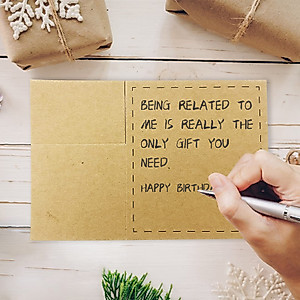 BEING RELATED TO
ME IS REALLY THE
ONLY GIFT YOU
NEED.
HAPPY BIRTHD